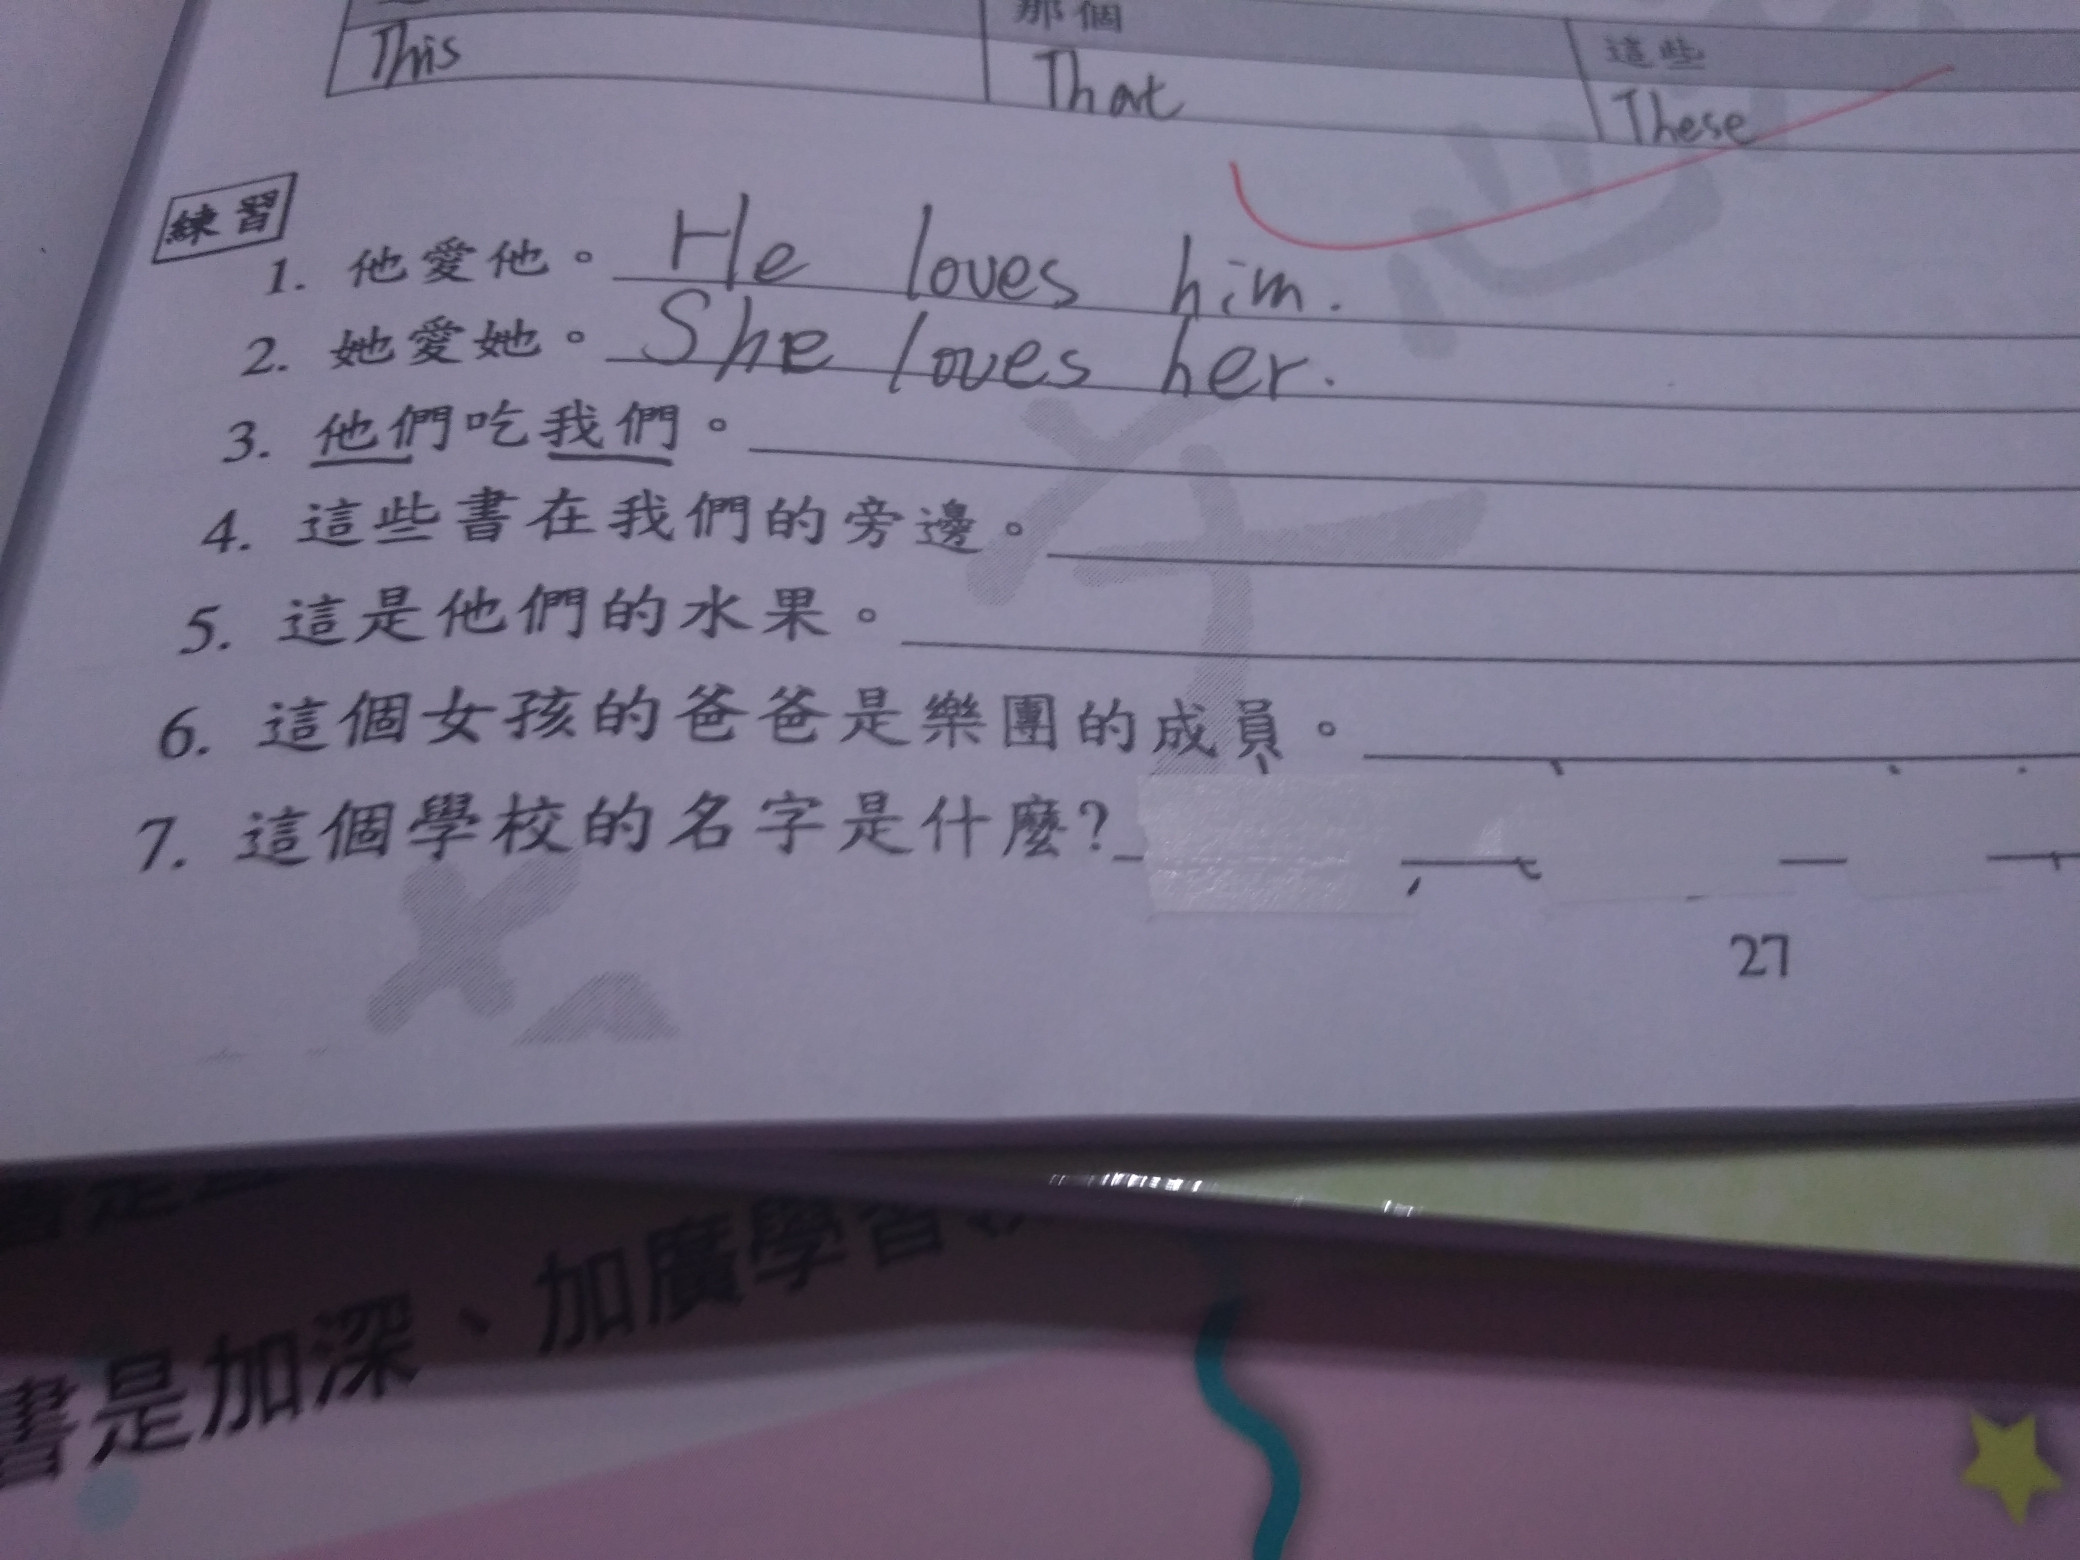 那個 這些
This That These
練習
1. 他愛他。 He loves him.
2. 她愛她。 She loves her.
3. 他們吃我們。
4. 這些書在我們的旁邊。
5. 這是他們的水果。
6. 這個女孩的爸爸是樂團的成員。
7. 這個學校的名字是什麼?
27
書是加深、加廣學習